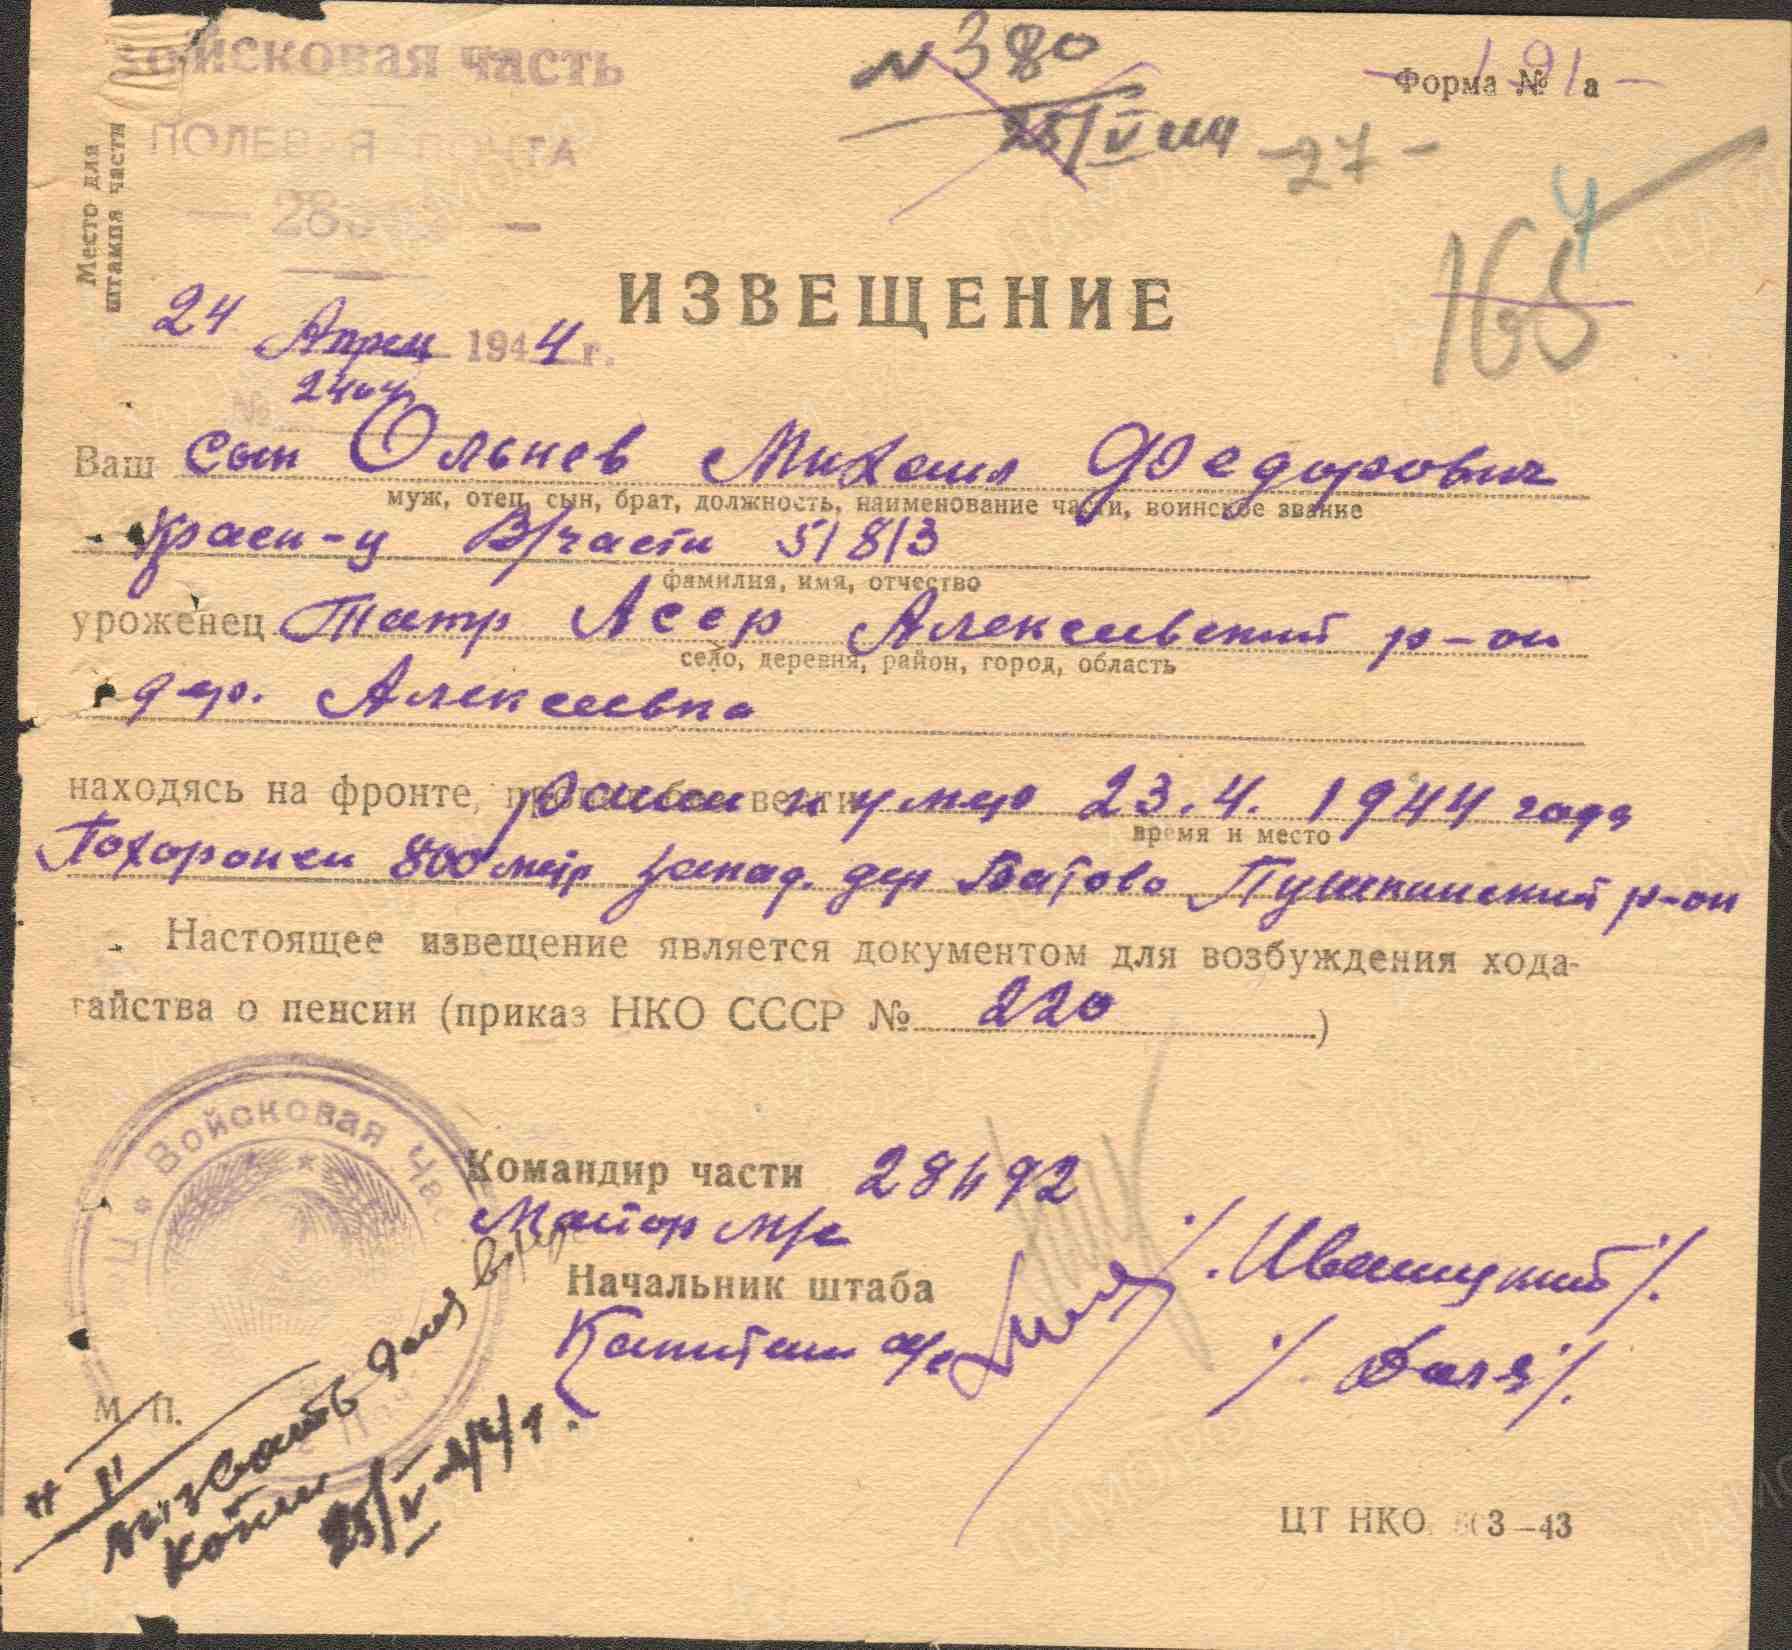 Войсковая часть
ПОЛЕВАЯ ПОЧТА
Место для
штампа части
N 380
25/V
Форма № 91а
-27-
165
4
ИЗВЕЩЕНИЕ
24 Апрел 1944 г.
№ 2404
Ваш сын Ольнев Михаил Федорович
муж, отец, сын, брат, должность, наименование части, воинское звание
красн-ц В/части 51813
фамилия, имя, отчество
уроженец Татр Асср Алексеевский р-он
село, деревня, район, город, область
дер. Алексеевка
находясь на фронте, ранен и умер 23.4.1944 года
время и место
Похоронен 800 метр запад. дер Батово Пушкинский р-он
Настоящее извещение является документом для возбуждения хода-
тайства о пенсии (приказ НКО СССР № 220 )
Войсковая Час
Командир части 28492
Майор м/с /. Иваницкий /.
Начальник штаба
Капитан а/с /. Даля /.
М. П.
"II"
Вызвать
копии
25/V-44г.
ЦТ НКО 3-43